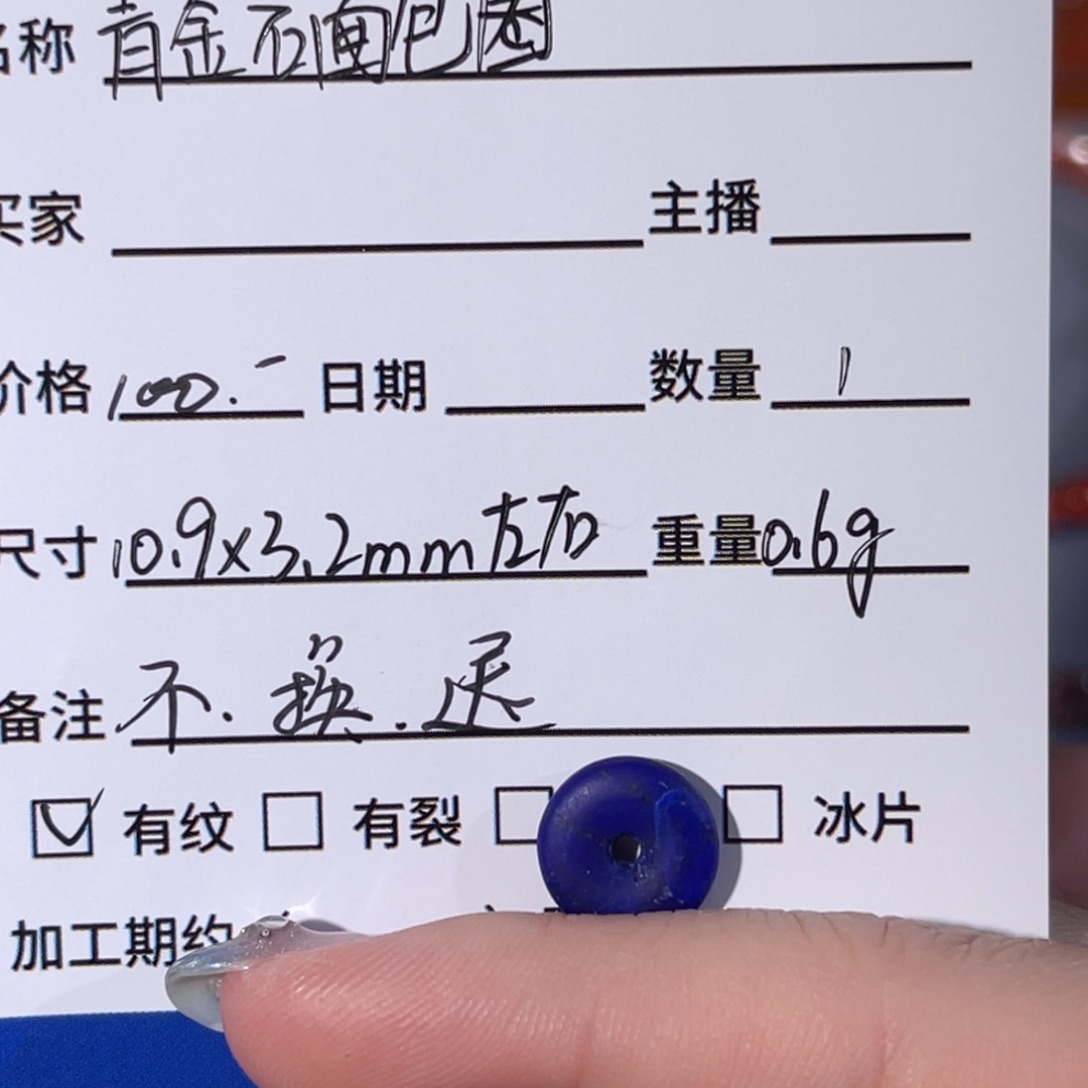 名称 青金石面包圈
买家 主播
价格 100.- 日期 数量 1
尺寸 10.9x3.2mm左右 重量 0.6g
备注 不.换.退
有纹 有裂 冰片
加工期约